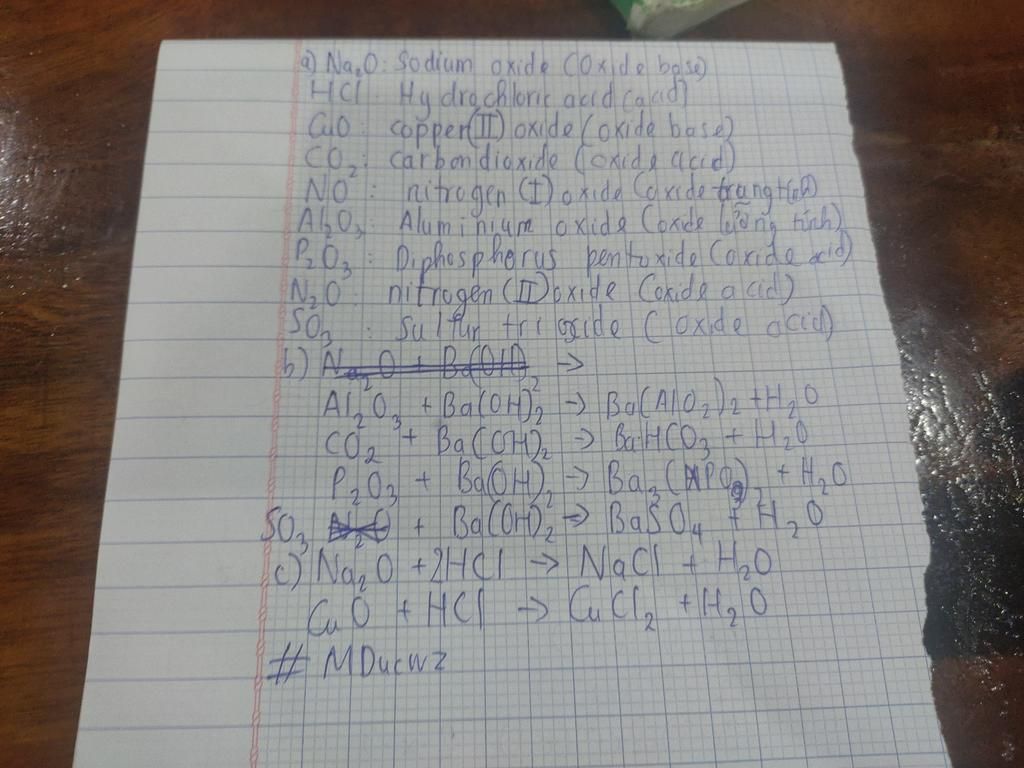 a) Na₂O: Sodium oxide (Oxide base)
HCl: Hydrochloric acid (acid)
CuO: copper(II) oxide (oxide base)
CO₂: carbon dioxide (oxide acid)
NO: nitrogen (I) oxide (oxide trung tính)
Al₂O₃: Aluminium oxide (oxide lưỡng tính)
P₂O₃: Diphosphorus pentoxide (oxide acid)
N₂O: nitrogen (II) oxide (oxide acid)
SO₃: Sulfur trioxide (oxide acid)
b) Na₂O + Ba(OH)₂ →
Al₂O₃ + Ba(OH)₂ → Ba(AlO₂)₂ + H₂O
CO₂ + Ba(OH)₂ → BaHCO₃ + H₂O
P₂O₃ + Ba(OH)₂ → Ba₃(PO₃)₂ + H₂O
SO₃ + Ba(OH)₂ → BaSO₄ + H₂O
c) Na₂O + 2HCl → NaCl + H₂O
CuO + HCl → CuCl₂ + H₂O
# MDucwz